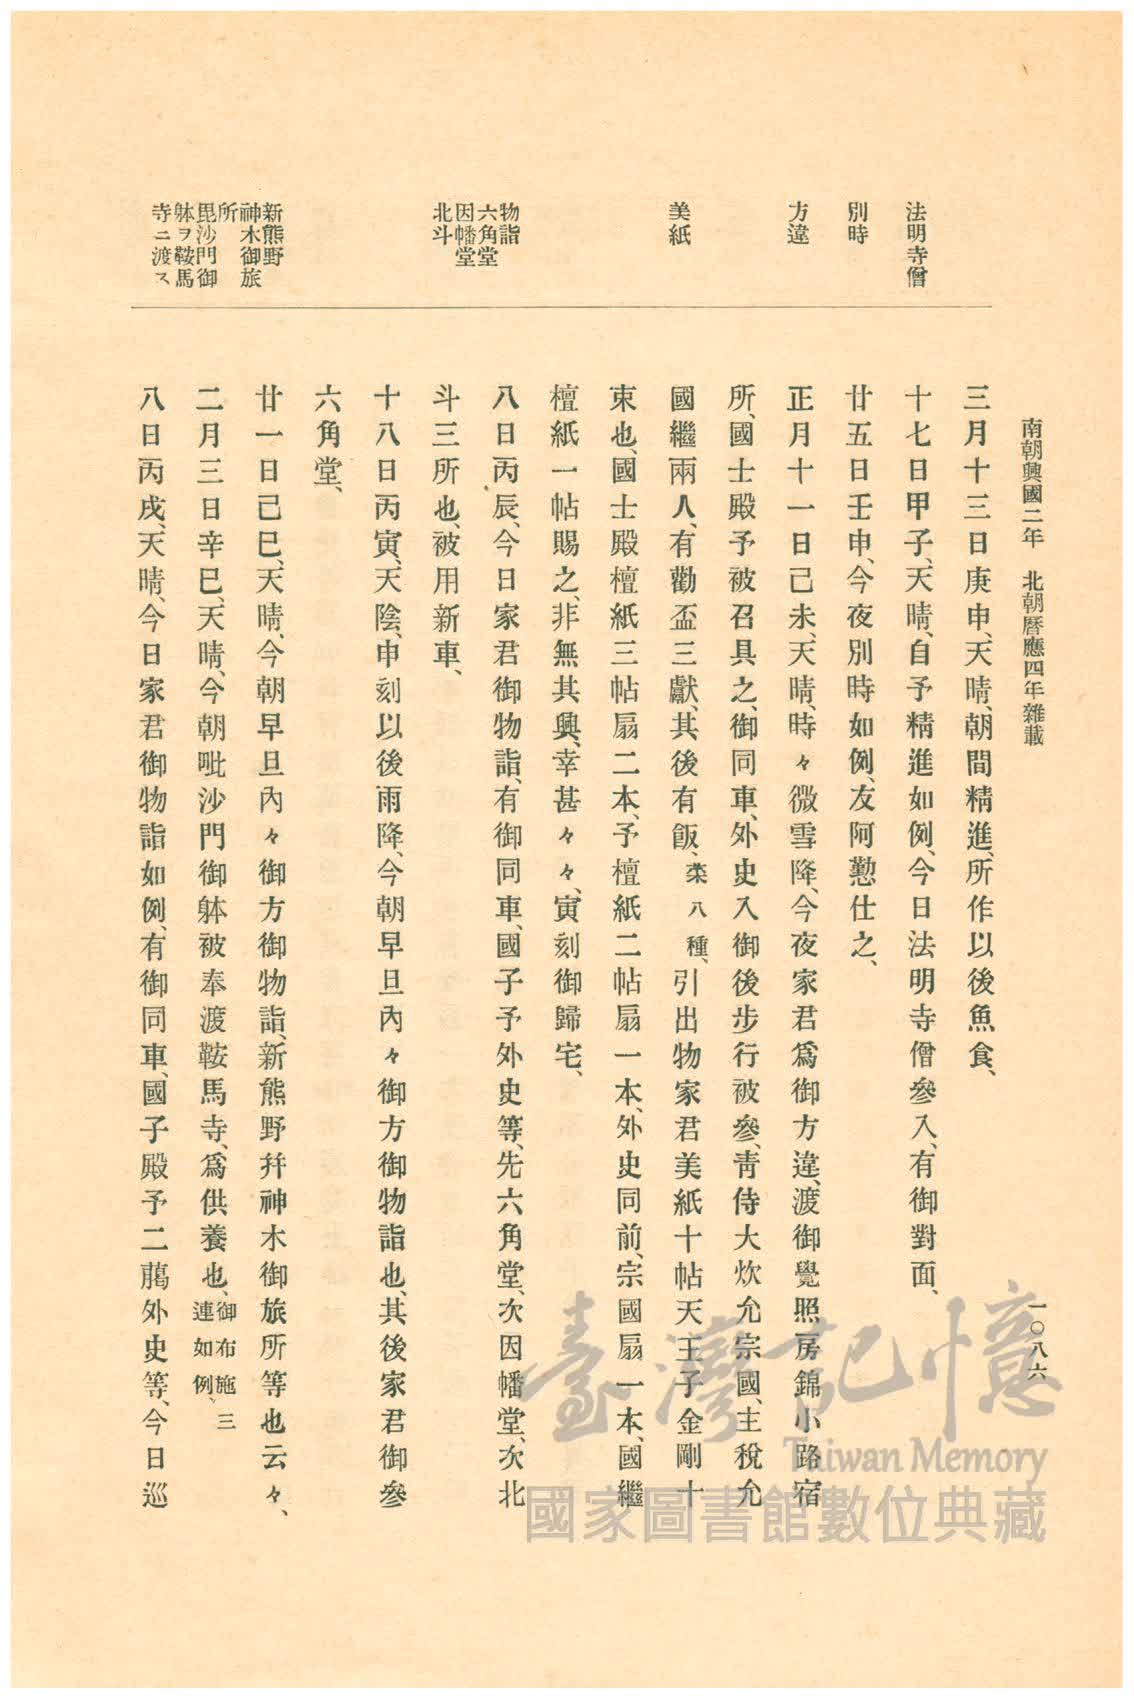 南朝興國二年　北朝曆應四年雜載
一〇八六
法明寺僧
別時
方違
美紙
物詣
六角堂
因幡堂
北斗
新熊野
神木御旅
所
毘沙門御
躰ヲ鞍馬
寺ニ渡ス
三月十三日庚申、天晴、朝間精進、所作以後魚食、
十七日甲子、天晴、自予精進如例、今日法明寺僧參入、有御對面、
廿五日壬申、今夜別時如例、友阿懃仕之、
正月十一日己未、天晴、時々微雪降、今夜家君爲御方違、渡御覺照房錦小路宿
所、國士殿予被召具之、御同車、外史入御後步行被參、靑侍大炊允宗國、主稅允
國繼兩人、有勸盃三獻、其後有飯、菜八種、引出物家君美紙十帖天王子金剛十
束也、國士殿檀紙三帖扇二本、予檀紙二帖扇一本、外史同前、宗國扇一本、國繼
檀紙一帖賜之、非無其興、幸甚々々、寅刻御歸宅、
八日丙辰、今日家君御物詣、有御同車、國子予外史等、先六角堂、次因幡堂、次北
斗三所也、被用新車、
十八日丙寅、天陰、申刻以後雨降、今朝早旦內々御方御物詣也、其後家君御參
六角堂、
廿一日己巳、天晴、今朝早旦內々御方御物詣、新熊野幷神木御旅所等也云々、
二月三日辛巳、天晴、今朝毗沙門御躰被奉渡鞍馬寺、爲供養也、御布施三連如例、
八日丙戌、天晴、今日家君御物詣如例、有御同車、國子殿予二﨟外史等、今日巡
臺灣記憶
Taiwan Memory
國家圖書館數位典藏